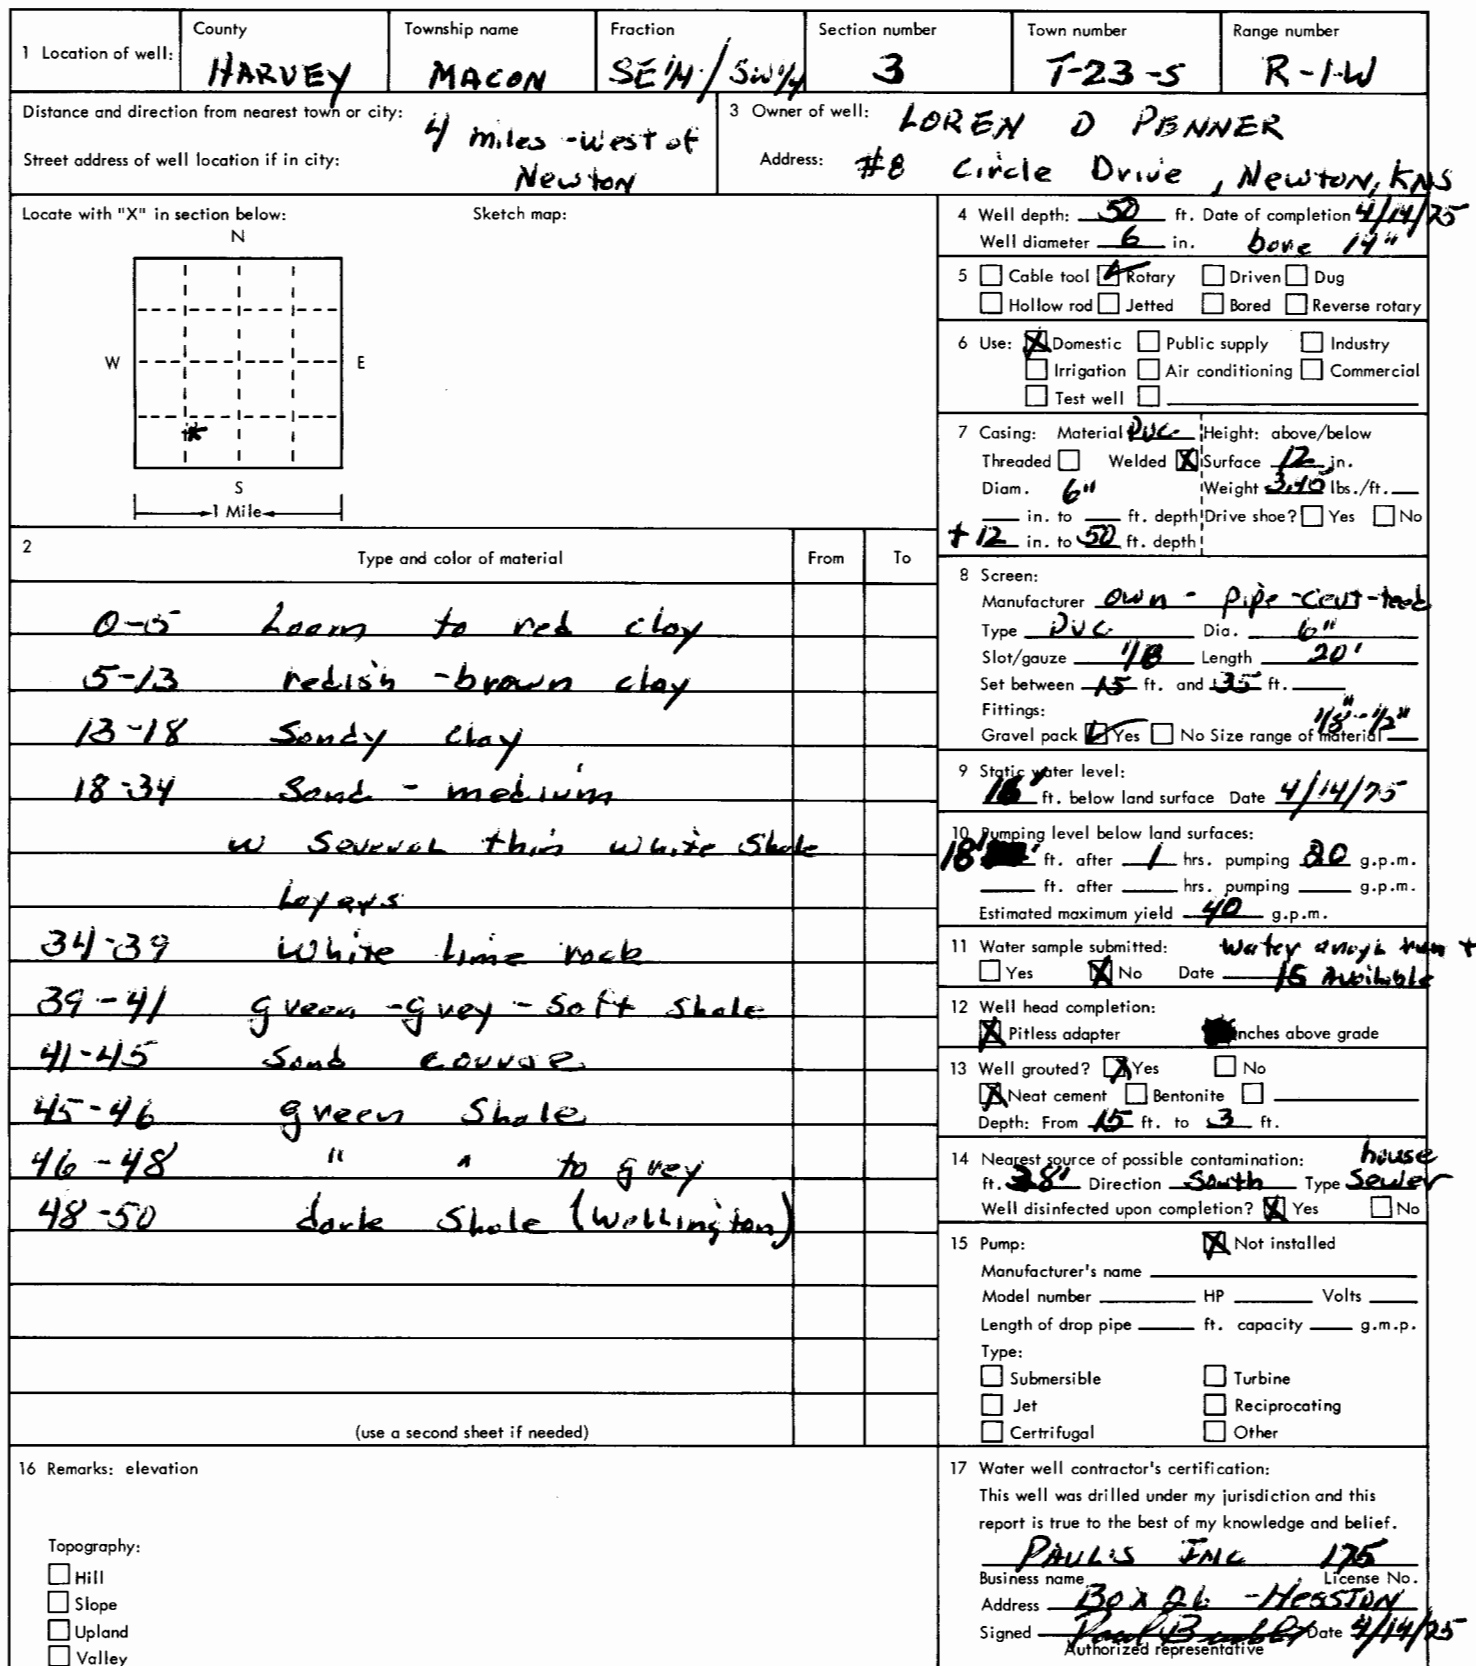 1 Location of well: County Township name Fraction Section number Town number Range number
HARVEY MACON SE 1/4 / SW 1/4 3 T-23-S R-1-W
Distance and direction from nearest town or city: 4 miles - west of
Street address of well location if in city: Newton
3 Owner of well: LOREN D PENNER
Address: #8 Circle Drive, Newton, KNS
Locate with "X" in section below: Sketch map:
N
W E
S
1 Mile
2 Type and color of material From To
0-5 Loam to red clay
5-13 redish -brown clay
13-18 Sandy clay
18-34 Sand - medium
w several thin white Shale
Layers
34-39 White lime rock
39-41 green -grey - soft shale
41-45 Sand course
45-46 green Shale
46-48 " " to grey
48-50 dark Shale (Wellington)
(use a second sheet if needed)
4 Well depth: 50 ft. Date of completion 4/14/75
Well diameter 6 in. bore 14"
5 Cable tool Rotary Driven Dug
Hollow rod Jetted Bored Reverse rotary
6 Use: Domestic Public supply Industry
Irrigation Air conditioning Commercial
Test well
7 Casing: Material PVC Height: above/below
Threaded Welded Surface 12 in.
Diam. 6" Weight 3.40 lbs./ft.
in. to ft. depth Drive shoe? Yes No
+12 in. to 50 ft. depth
8 Screen:
Manufacturer own - pipe
Type PVC Dia. 6"
Slot/gauze 1/8 Length 20'
Set between 15 ft. and 35 ft.
Fittings: 1/8"-1/2"
Gravel pack Yes No Size range of material
9 Static water level:
16' ft. below land surface Date 4/14/75
10 Pumping level below land surfaces:
18' ft. after 1 hrs. pumping 20 g.p.m.
ft. after hrs. pumping g.p.m.
Estimated maximum yield 40 g.p.m.
11 Water sample submitted: Water
Yes No Date is Available
12 Well head completion:
Pitless adapter inches above grade
13 Well grouted? Yes No
Neat cement Bentonite
Depth: From 15 ft. to 3 ft.
14 Nearest source of possible contamination: house
ft. 38' Direction South Type Sewer
Well disinfected upon completion? Yes No
15 Pump: Not installed
Manufacturer's name
Model number HP Volts
Length of drop pipe ft. capacity g.m.p.
Type:
Submersible Turbine
Jet Reciprocating
Certrifugal Other
16 Remarks: elevation
Topography:
Hill
Slope
Upland
Valley
17 Water well contractor's certification:
This well was drilled under my jurisdiction and this
report is true to the best of my knowledge and belief.
PAUL'S INC 175
Business name License No.
Address Box 26 - HESSTON
Signed Paul Date 4/14/75
Authorized representative